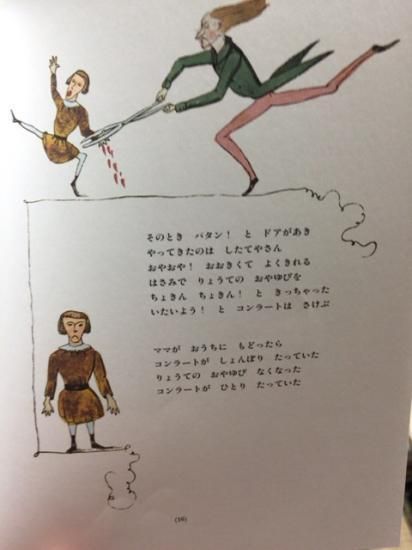 そのとき　バタン！　と　ドアがあき
やってきたのは　したてやさん
おやおや！　おおきくて　よくきれる
はさみで　りょうての　おやゆびを
ちょきん　ちょきん！　と　きっちゃった
いたいよう！　と　コンラートは　さけぶ
ママが　おうちに　もどったら
コンラートが　しょんぼり　たっていた
りょうての　おやゆび　なくなった
コンラートが　ひとり　たっていた
(16)